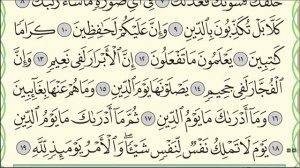 خَلَقَكَ فَسَوَّىٰكَ فَعَدَلَكَ ٧ فِىٓ أَىِّ صُورَةٍ مَّا شَآءَ رَكَّبَكَ ٨
كَلَّا بَلْ تُكَذِّبُونَ بِٱلدِّينِ ٩ وَإِنَّ عَلَيْكُمْ لَحَـٰفِظِينَ ١٠ كِرَامًا
كَـٰتِبِينَ ١١ يَعْلَمُونَ مَا تَفْعَلُونَ ١٢ إِنَّ ٱلْأَبْرَارَ لَفِى نَعِيمٍ ١٣ وَإِنَّ
ٱلْفُجَّارَ لَفِى جَحِيمٍ ١٤ يَصْلَوْنَهَا يَوْمَ ٱلدِّينِ ١٥ وَمَا هُمْ عَنْهَا بِغَآئِبِينَ
١٦ وَمَآ أَدْرَىٰكَ مَا يَوْمُ ٱلدِّينِ ١٧ ثُمَّ مَآ أَدْرَىٰكَ مَا يَوْمُ ٱلدِّينِ
١٨ يَوْمَ لَا تَمْلِكُ نَفْسٌ لِّنَفْسٍ شَيْـًٔا وَٱلْأَمْرُ يَوْمَئِذٍ لِّلَّهِ ١٩